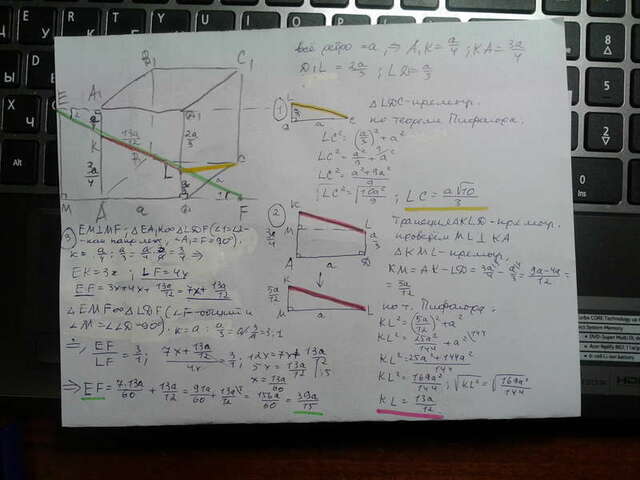 всё ребро = a, ⇒ A₁K = a/4 ; KA = 3a/4
D₁L = 2a/3 ; LD = a/3
B₁
C₁
E
A₁
D₁
13a/12
2a/3
K
3a/4
L
C
M
A
a
F
①
L
a/3
a
C
△LDC - прямоуг.
по теореме Пифагора:
LC² = (a/3)² + a²
LC² = a²/9 + a²
LC² = a²+9a²/9
LC² = √10a²/9 ; LC = a√10/3
②
K
M
L
3a/4
a/3
A
a
D
K
5a/12
M
a
L
проведём ML ⊥ KA
△KML - прямоуг.
KM = AK - LD = 3a/4 - a/3 = 9a-4a/12 =
= 5a/12
по т. Пифагора:
KL² = (5a/12)² + a²
KL² = 25a²/144 + a²
KL² = 25a²+144a²/144
KL² = 169a²/144 ; √KL² = √169a²/144
KL = 13a/12
③ EM⊥MF; △EA₁K∞△LDF (∠1=∠2-
-как накрест, ∠A₁=∠F=90°).
k = a/4 : a/3 = a/4 · 3/a = 3/4 ⇒
EK = 3x ; LF = 4x
EF = 3x+4x+13a/12 = 7x+13a/12
△EMF∞△LDF (∠F-общий и
∠M=∠LD=90°). k = a : a/3 = a · 3/a = 3:1
⇒, EF/LF = 3/1 ; 7x+13a/12/4x = 3/1 ; 12x = 7x + 13a/12
5x = 13a/12 | :5
x = 13a/60
⇒ EF = 7·13a/60 + 13a/12 = 91a/60 + 13a/12 = 156a/60 = 39a/15